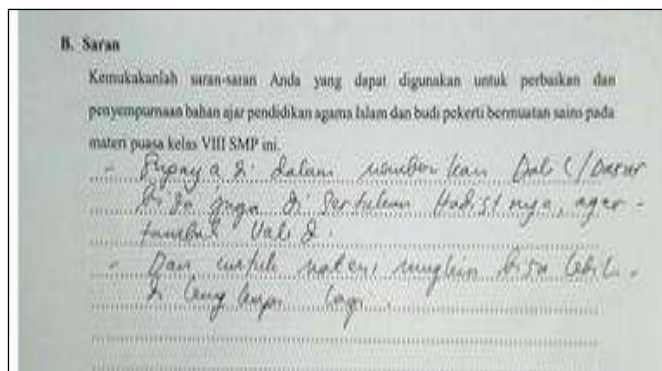 B. Saran
Kemukakanlah saran-saran Anda yang dapat digunakan untuk perbaikan dan
penyempurnaan bahan ajar pendidikan agama Islam dan budi pekerti bermuatan sains pada
materi puasa kelas VIII SMP ini.
- Supaya di dalam memberikan Dalil/Dasar
bisa juga di sertakan Hadist nya, agar
tambah Valid.
- Dan untuk materi mungkin bisa lebih
di lengkapi lagi.